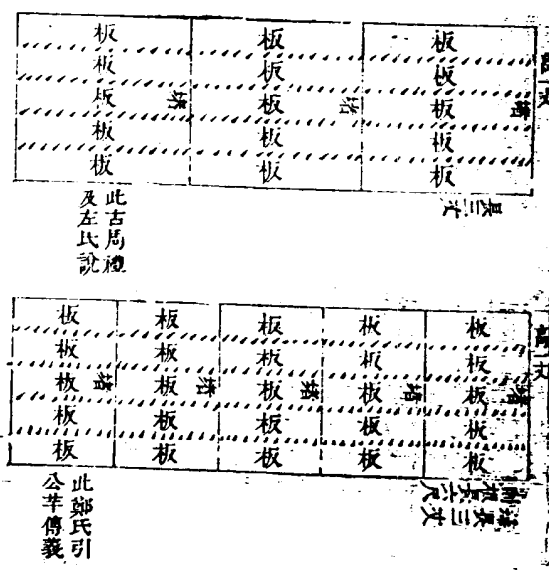 高一丈
板 板 板
板 板 板
板 堵 板 堵 板 堵
板 板 板
板 板 板
長三丈
此古周禮
及左氏說
高一丈
板 板 板 板 板
板 板 板 板 板
板 堵 板 堵 板 堵 板 堵 板 堵
板 板 板 板 板
板 板 板 板 板
長三丈
則板長六尺
此鄭氏引
公羊傳義